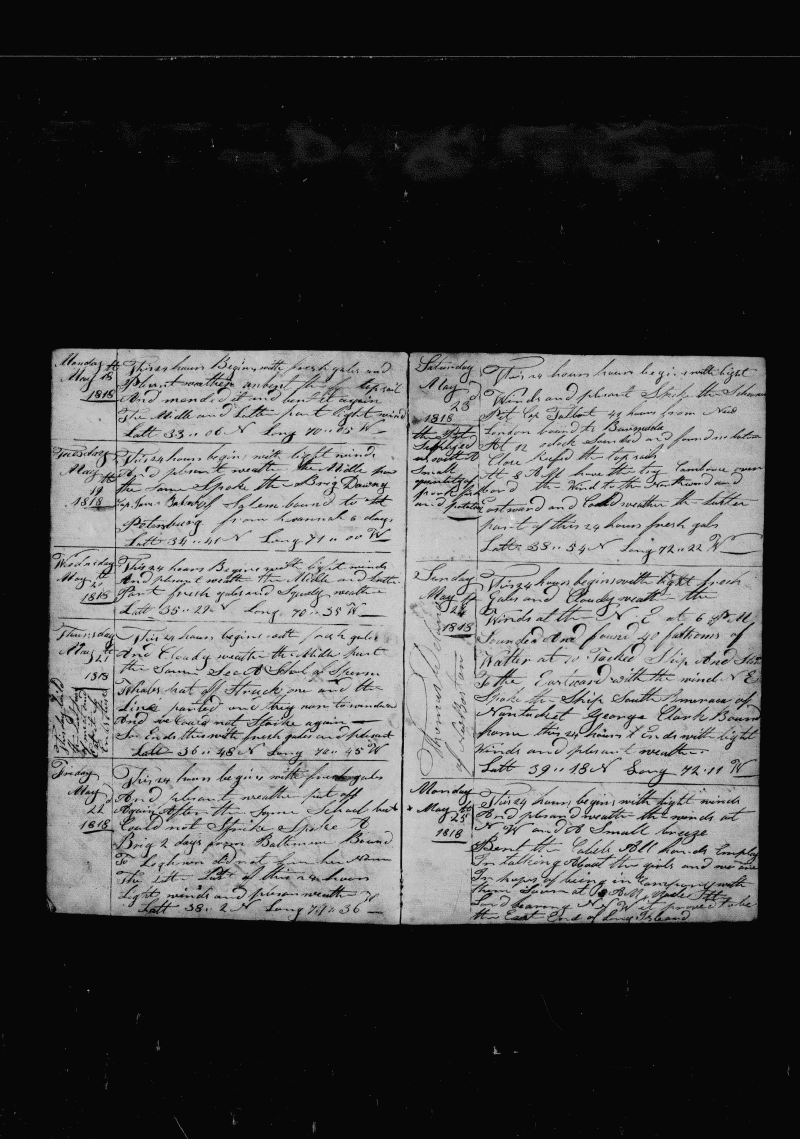 Monday
May 18th
1818
This 24 hours Begins with fresh gales and
Plesent weather unbent the top sail
And mended it and bent it again
The Midle and Latter part light wind
Latt 33 .. 06 N Long 70 .. 05 W
Tuesday
May th
19
1818
This 24 hours begins with light winds
And plesent weather the Midle part
the Same Spoke the Brig
of Salem bound to St
Petersburg from 6 days
Latt 34 .. 41 N Long 71 .. 00 W
Wednsday
May th
20
1818
This 24 hours Begins with light winds
And plesant weather the Midle and Latter
Part fresh gales and Squaly weather
Latt 35 .. 29 N Long 70 .. 35 W
Thursday
May
21
1818
This 24 hours begins with fresh gales
And Cloudy weather the Midle part
the Same See A Scool of Sperm
Whales put off Struck one and the
Line parted and they went to windward
And we Could not Strike again
So Ends this with fresh gales and plesant
Latt 36 .. 48 N Long 70 .. 45 W
Friday
May d
22
1818
This 24 hours begins with fresh gales
And plesant weather put off
Again After the Same School but
Could not Strike Spoke A
Brig 2 days from Baltimore Bound
To Leghorn did not learn her Name
The Latter Part of this 24 hours
Light winds and plesan weather
Latt 38 .. 2 N Long 36
Saturday
May d
23
1818
Supplyed
us with A
Small
quantity of
pork
and potatoes
This 24 hours hours begins with light
Winds and plesant Spoke the Schooner
Talbot 42 hours from New
London bound to Barmuda
At 12 oclock Sounded and found no bottom
Close Reefd the top sails
At 8 hove the Cambose over
bord the Wind to the Northward and
astward and Cold weather the Latter
part of this 24 hours fresh gales
Latt 38 .. 54 N Long 72 .. 22 W
Sunday
May th
24
1818
Thomas
of Boston
This 24 hours begins with fresh
Gales and Cloudy weather the
Winds at the N E at 6 P M
Sounded And found 40 fathoms of
Watter at 10 Tacked Ship And Stood
To the Eastward with the wind N E
Spoke the Ship South America of
Nantucket George Clark Bound
home this 24 hours Ends with light
winds and plesant weather
Latt 39 .. 18 N Long 72 .. 11 W
Monday
May th
25
1818
This 24 hours begins with light winds
And plesand weather the winds at
N W and A Small breeze
Bent the Cabels All hands Employd
In talking About the girls and we are
In hopes of being in Company with
them Soon at
Land bearing N N W it proved to be
the East End of Long Island